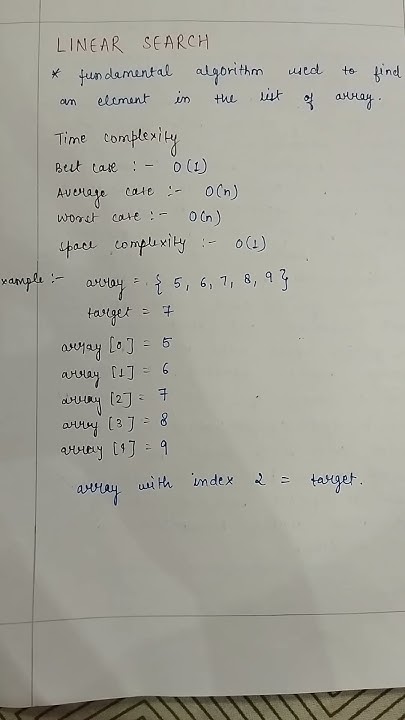 LINEAR SEARCH
* fundamental algorithm used to find
an element in the list of array.
Time complexity
Best case :- O(1)
Average case :- O(n)
Worst case :- O(n)
Space complexity :- O(1)
xample :- array = { 5, 6, 7, 8, 9 }
target = 7
array [0] = 5
array [1] = 6
array [2] = 7
arry [3] = 8
array [4] = 9
array with index 2 = target.